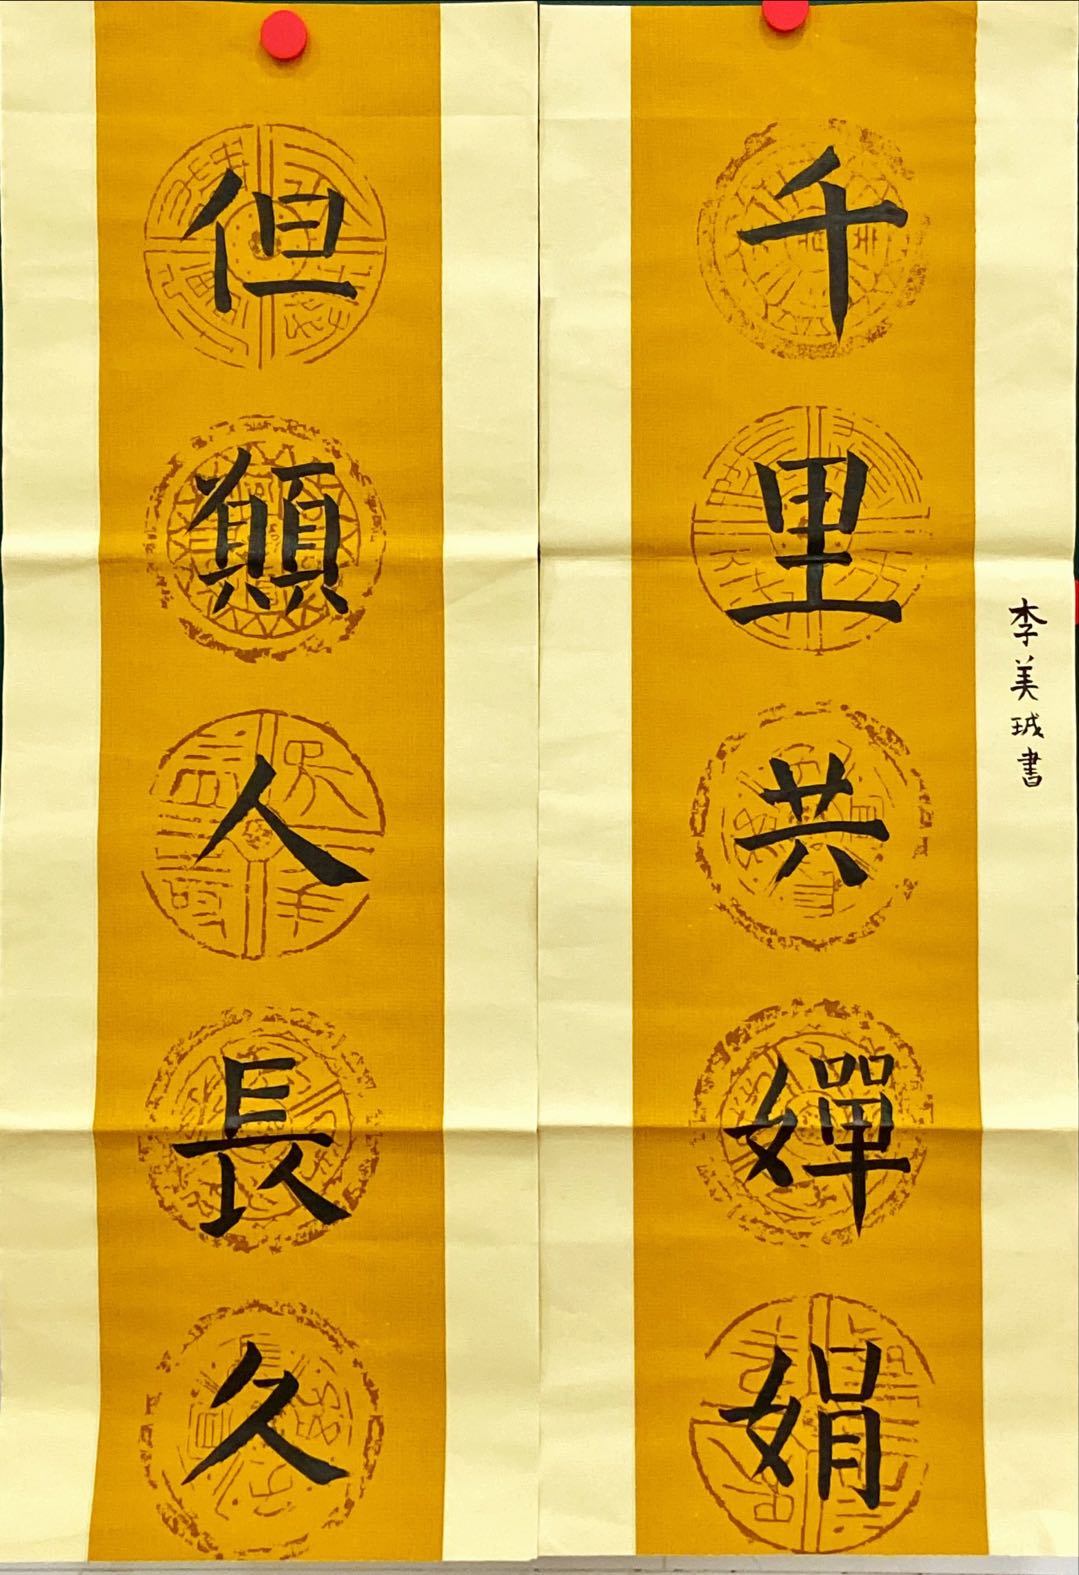 但願人長久
千里共嬋娟
李美珹書